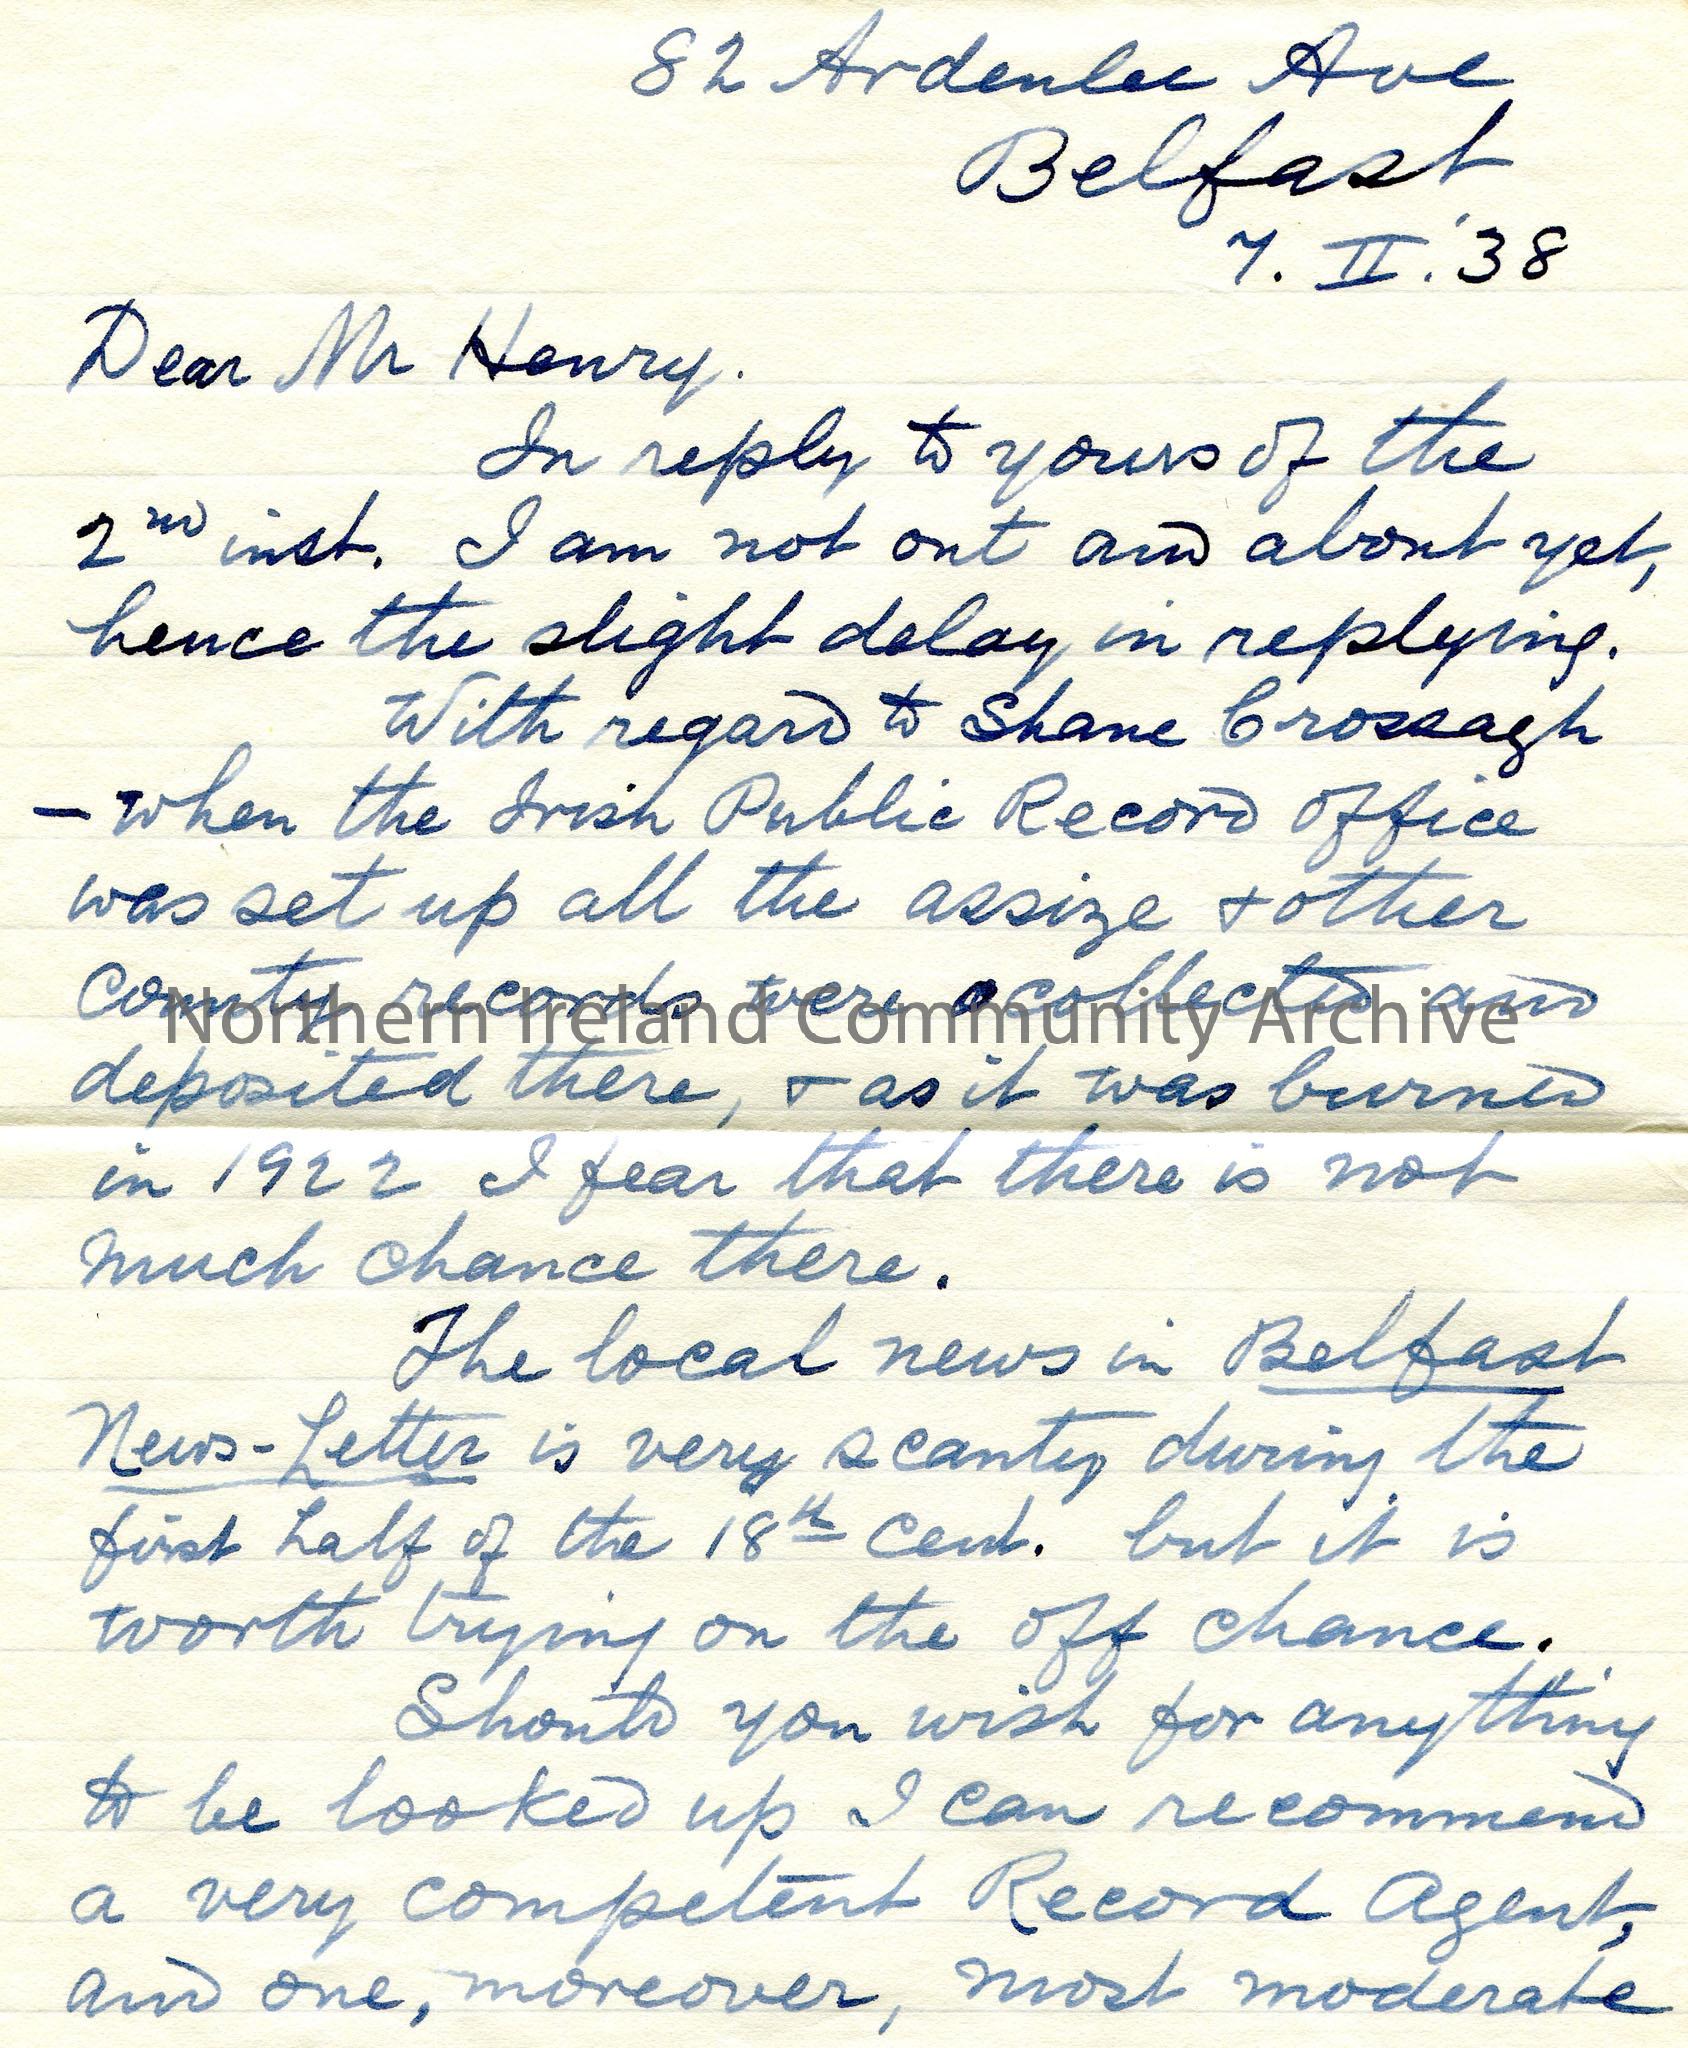 82 Ardenlee Ave
Belfast
7. II. '38
Dear Mr Henry.
In reply to yours of the
2nd inst. I am not out and about yet,
hence the slight delay in replying.
With regard to Shane Crossagh
– when the Irish Public Record Office
was set up all the assize & other
County records were collected and
Northern Ireland Community Archive
deposited there, & as it was burned
in 1922 I fear that there is not
much chance there.
The local news in Belfast
News-Letter is very scanty during the
first half of the 18th Cent. but it is
worth trying on the off chance.
Should you wish for anything
to be looked up I can recommend
a very competent Record Agent,
and one, moreover, most moderate